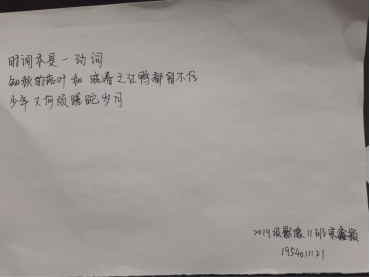 时间本是一动词
知秋的落叶和晓春之江鸭都留不住
少年又何须蹉跎岁月
2019级影像11班宋鑫颖
1954011121